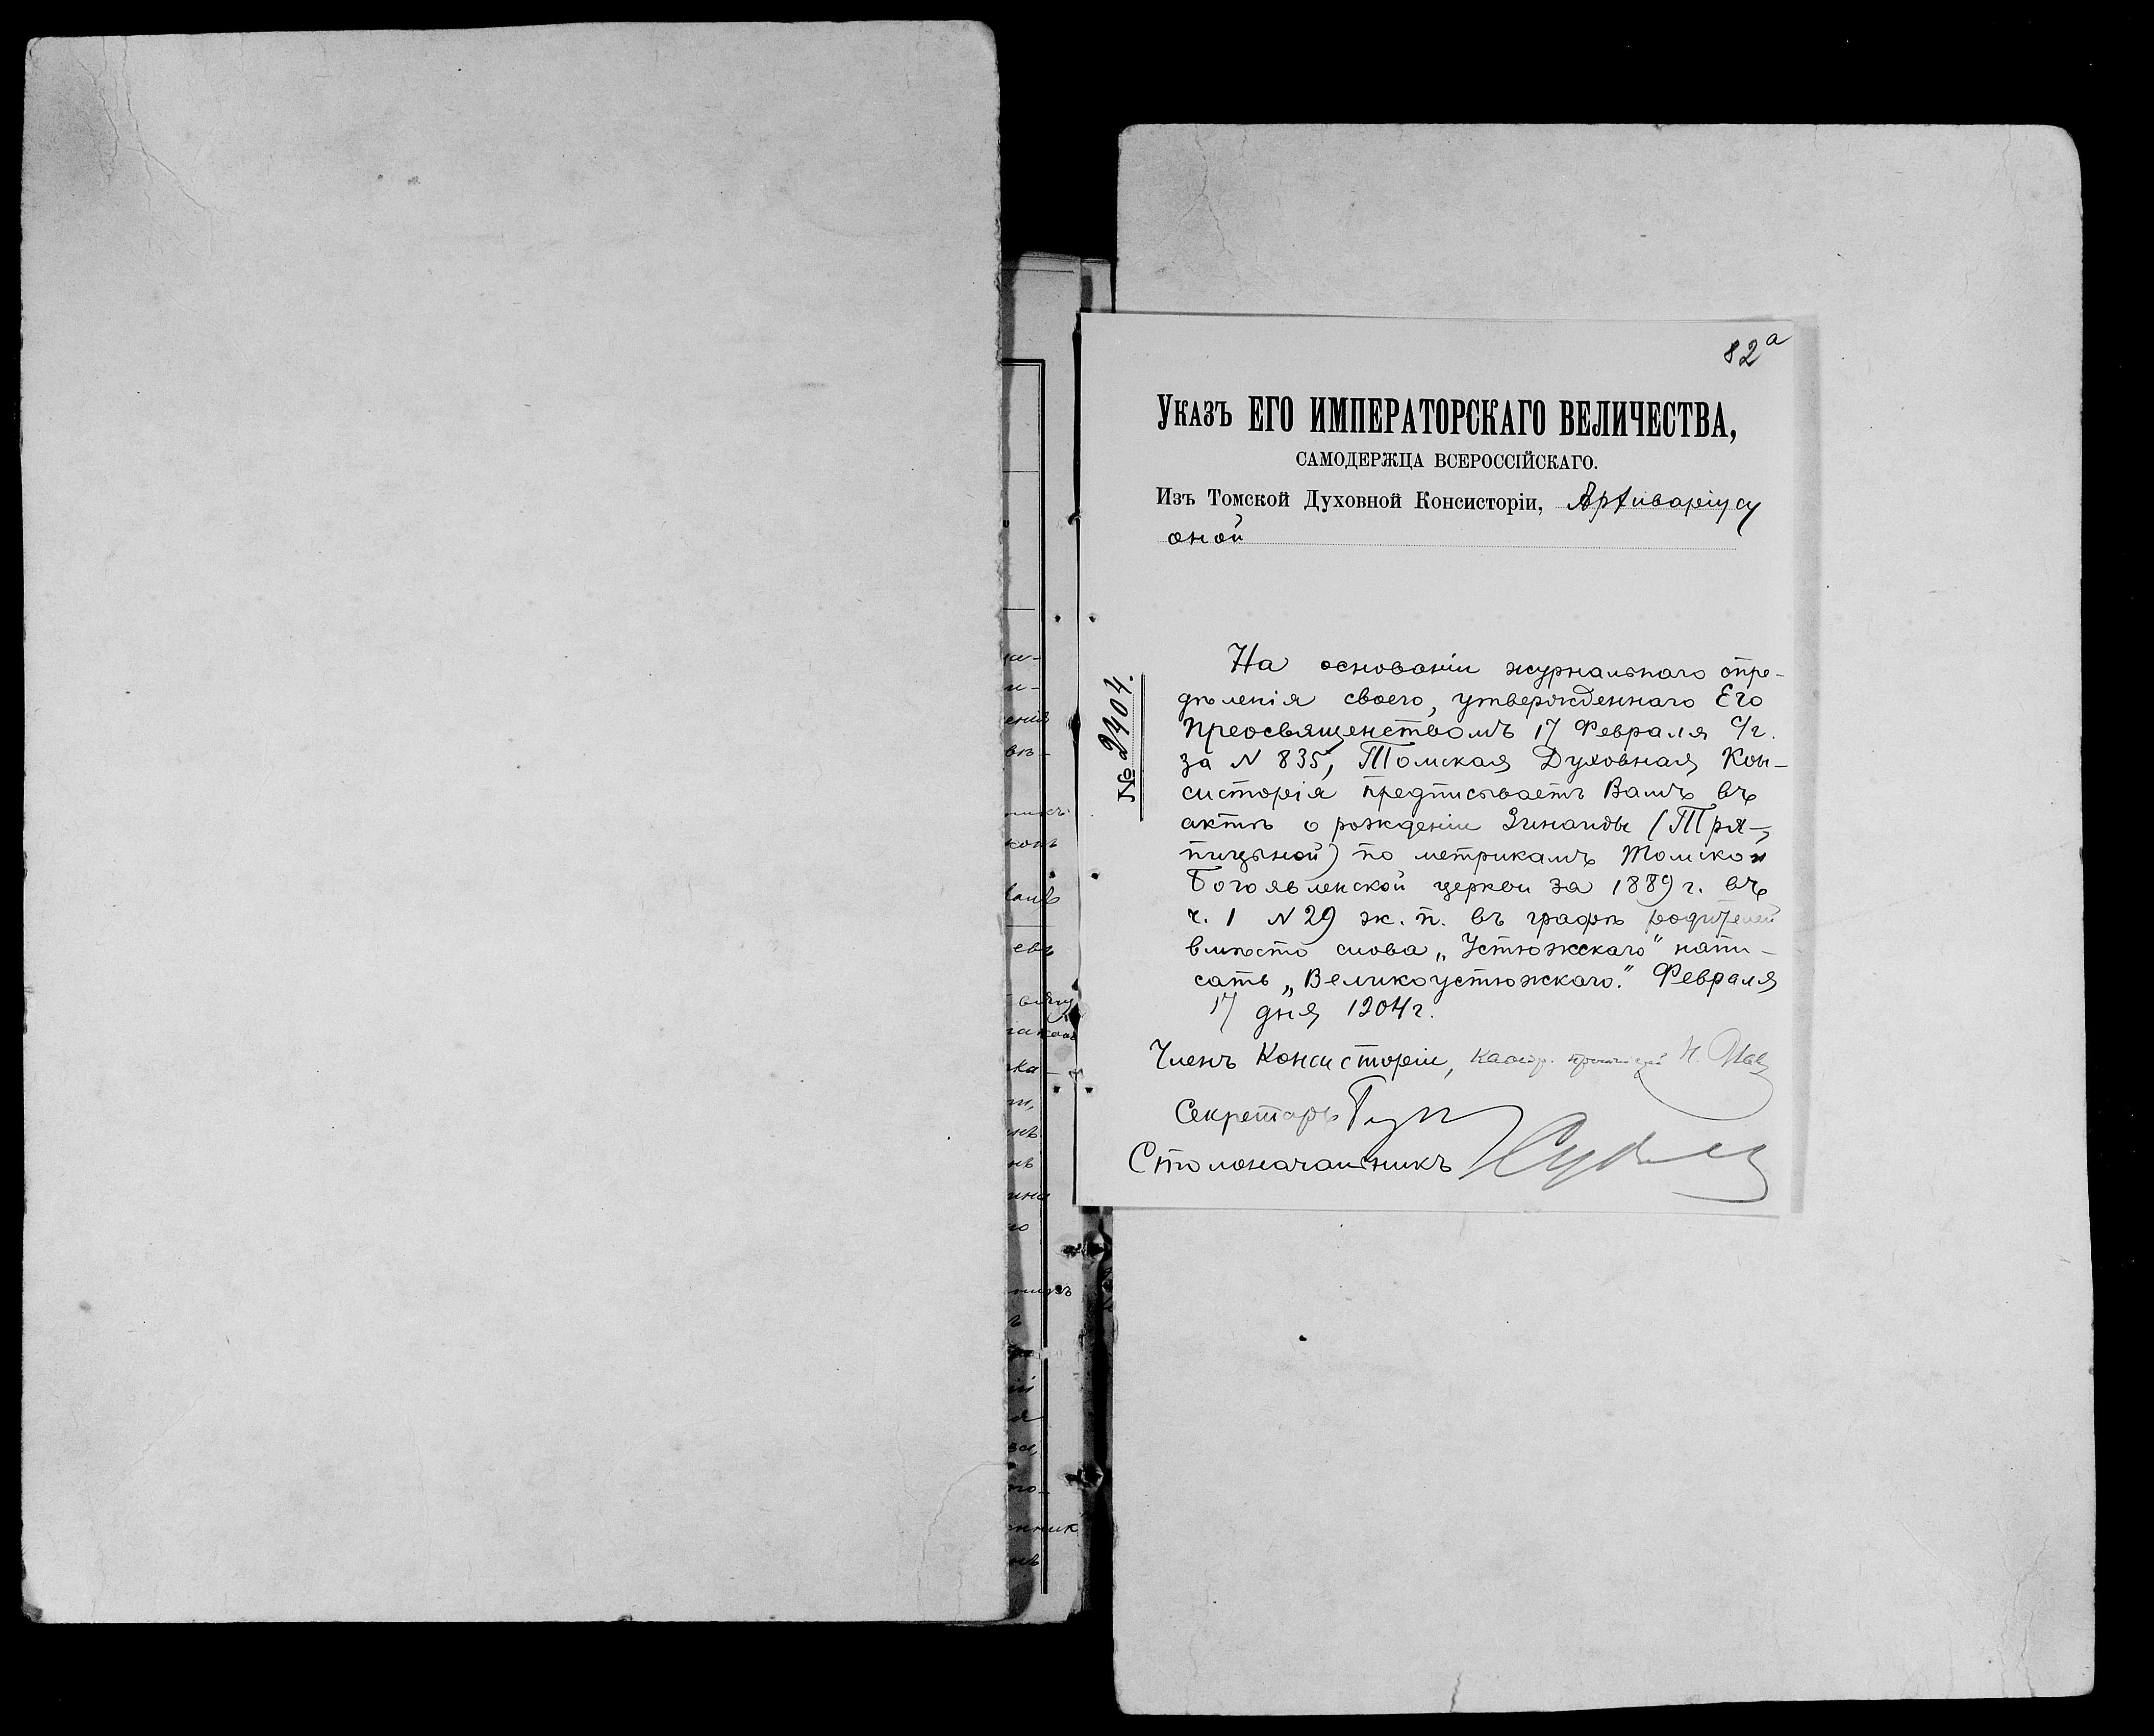 82а
Указъ ЕГО ИМПЕРАТОРСКАГО ВЕЛИЧЕСТВА,
САМОДЕРЖЦА ВСЕРОССІЙСКАГО.
Изъ Томской Духовной Консисторіи, Архиваріусу
оной
№ 2404.
На основаніи журнальнаго опре-
дѣленія своего, утвержденнаго Его
Преосвященствомъ 17 Февраля с/г.
за N 835, Томская Духовная Кон-
систорія предписываетъ Вамъ въ
актѣ о рожденіи Зинаиды (Тря-
пицыной) по метрикамъ Томской
Богоявленской церкви за 1889 г. въ
ч. 1 N 29 ж. п. въ графѣ родителей
вмѣсто слова „Устюжскаго" напи-
сать „Великоустюжскаго." Февраля
17 дня 1904 г.
Членъ Консисторіи,
Секретарь
Столоначальникъ